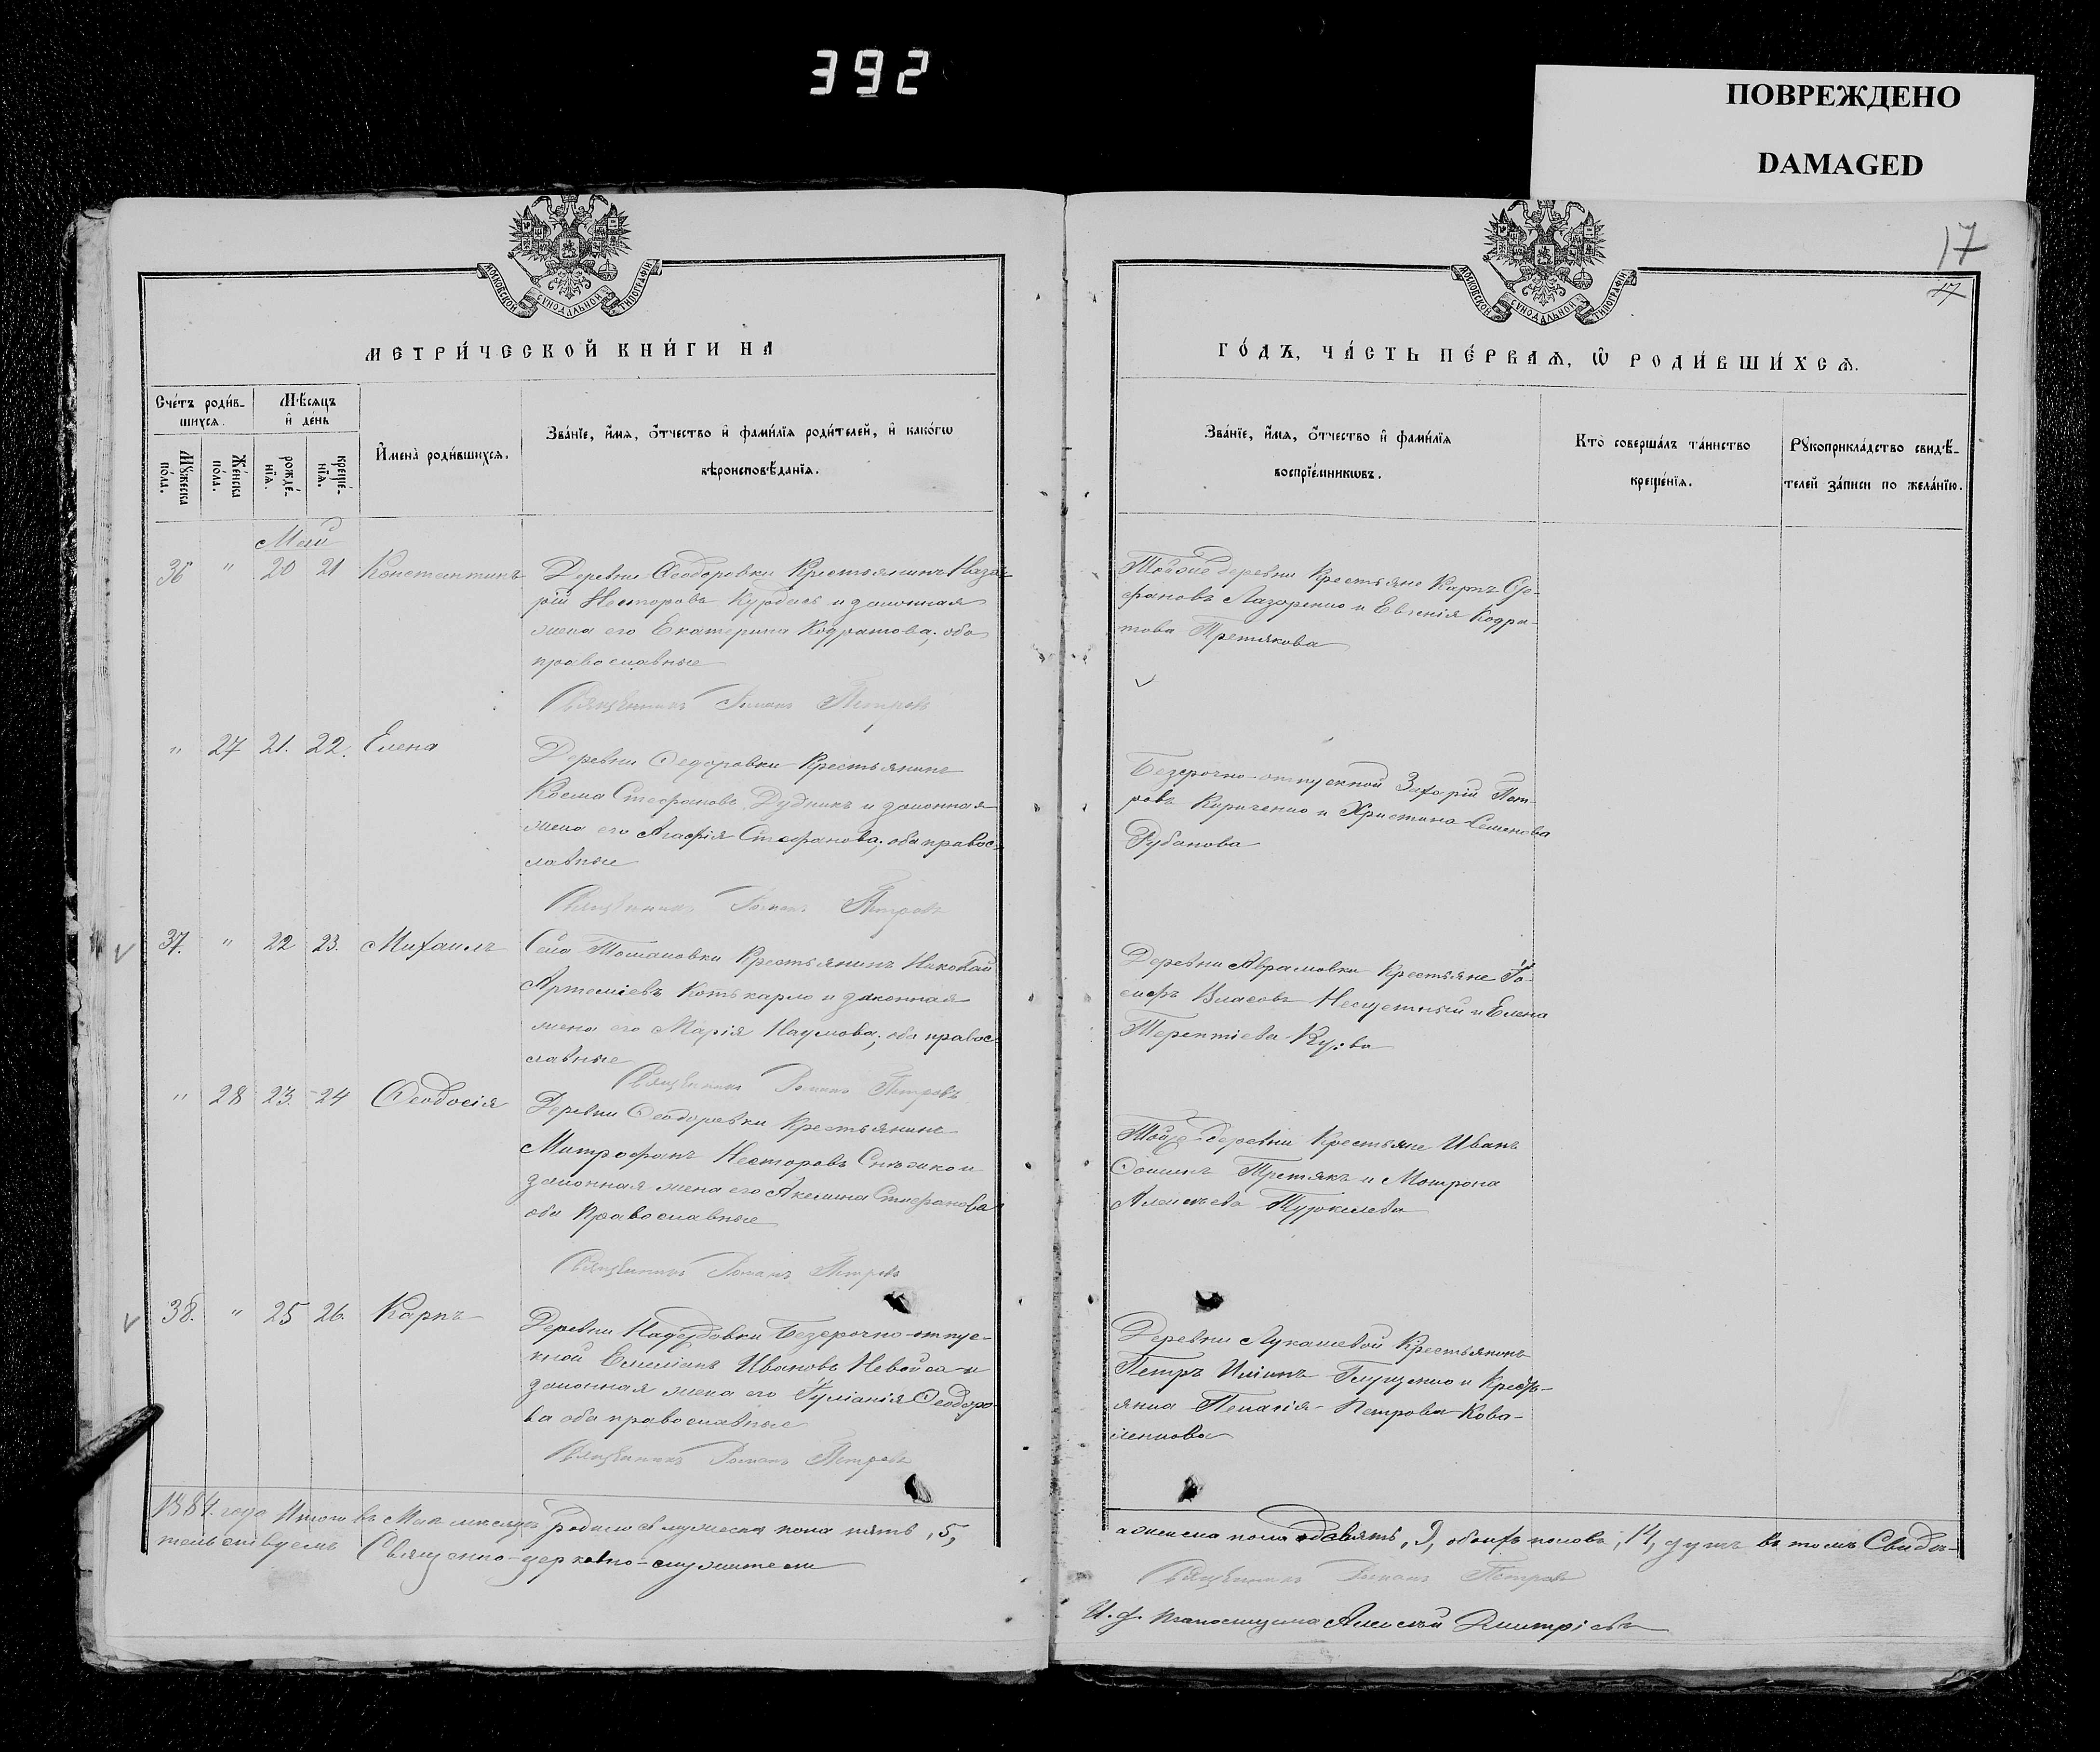 392
ПОВРЕЖДЕНО
DAMAGED
МОСКОВСКОЙ СѴНОДАЛЬНОЙ ТИПОГРАФІИ
МЕТРИ́ЧЕСКОЙ КНИ́ГИ НА
Сче́тъ роди́в-
шихсѧ.
Мꙋ́жеска по́ла.
Же́нска по́ла.
Мѣ́сѧцъ
и҆ де́нь
рожде́-
нїѧ.
креще́-
нїѧ.
И҆мена̀ роди́вшихсѧ.
Зва́нїе, и҆́мѧ, ѻ҆́тчество и҆ фами́лїѧ роди́телей, и҆ како́гѡ
вѣроисповѣ́данїѧ.
Май
36 " 20 21 Константинъ
Деревни Ѳеодоровки Крестьянинъ Наза-
рій Несторовъ и законная
жена его Екатерина Кодратова; оба
православные
Священникъ Романъ Петровъ
" 27 21. 22. Елена
Деревни Ѳедоровки Крестьянинъ
Косма Стефановъ Дудникъ и законная
жена его Агафія Стефанова; оба правос-
лавные
Священникъ Романъ Петровъ
37. " 22 23. Михаилъ
Села Томаковки Крестьянинъ Николай
Артеміевъ Котькарло и законная
жена его Марія Наумова; оба правос-
лавные
Священникъ Романъ Петровъ
" 28 23. 24 Ѳеодосія
Деревни Ѳеодоровки Крестьянинъ
Митрофанъ Несторовъ и
законная жена его Акелина Стефанова
оба Православные
Священникъ Романъ Петровъ
38. " 25 26. Карпъ
Деревни Надеждовки Безсрочно-отпус-
кной Емеліанъ Ивановъ Невойса и
законная жена его Іуліанія Ѳеодоро-
ва оба православные
Священникъ Романъ Петровъ
1884. года Итого въ Мае месяце родилось мужеска пола пять, 5,
тельствуемъ Священно-церковно-служители
17
17
МОСКОВСКОЙ СѴНОДАЛЬНОЙ ТИПОГРАФІИ
ГО́ДЪ, ЧА́СТЬ ПЕ́РВАѦ, Ѡ҆ РОДИ́ВШИ́ХСѦ.
Зва́нїе, и҆́мѧ, ѻ҆́тчество и҆ фами́лїѧ
воспрїе́мникѡвъ.
Кто̀ соверша́лъ та́инство
креще́нїѧ.
Рꙋкоприкла́дство свидѣ́-
телей за́писи по жела́нїю.
Тойже деревни Крестьяне Карпъ Сте-
фановъ Лазаренко и Евгенія Кодра-
това Третякова
Безсрочно-отпускной Захарій Пет-
ровъ Кириченко и Христина Семенова
Рубанова
Деревни Аврамовки Крестьяне Іо-
сифъ Власовъ и Елена
Терентіева
Тойже деревни Крестьяне Иванъ
Ѳоминъ Третякъ и Мотрона
Алексѣева
Деревни Лукашевой Крестьянинъ
Петръ Илiинъ Глущенко и Кресть-
янка Пелагія Петрова Кова-
ленкова
а женска пола девять, 9, обоихъ половъ, 14, душъ въ томъ Свидѣ-
Священникъ Романъ Петровъ
И. д. псаломщика Алексѣй Дмитріевъ